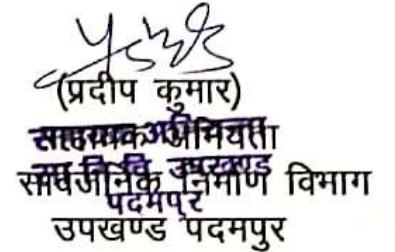 (प्रदीप कुमार)
सहायक अभियंता
सार्वजनिक निर्माण विभाग
पदमपुर
उपखण्ड पदमपुर